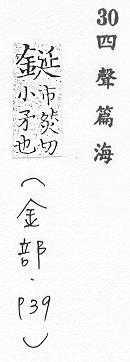 30四聲篇海
鋋市然切小矛也
(金部.P39)